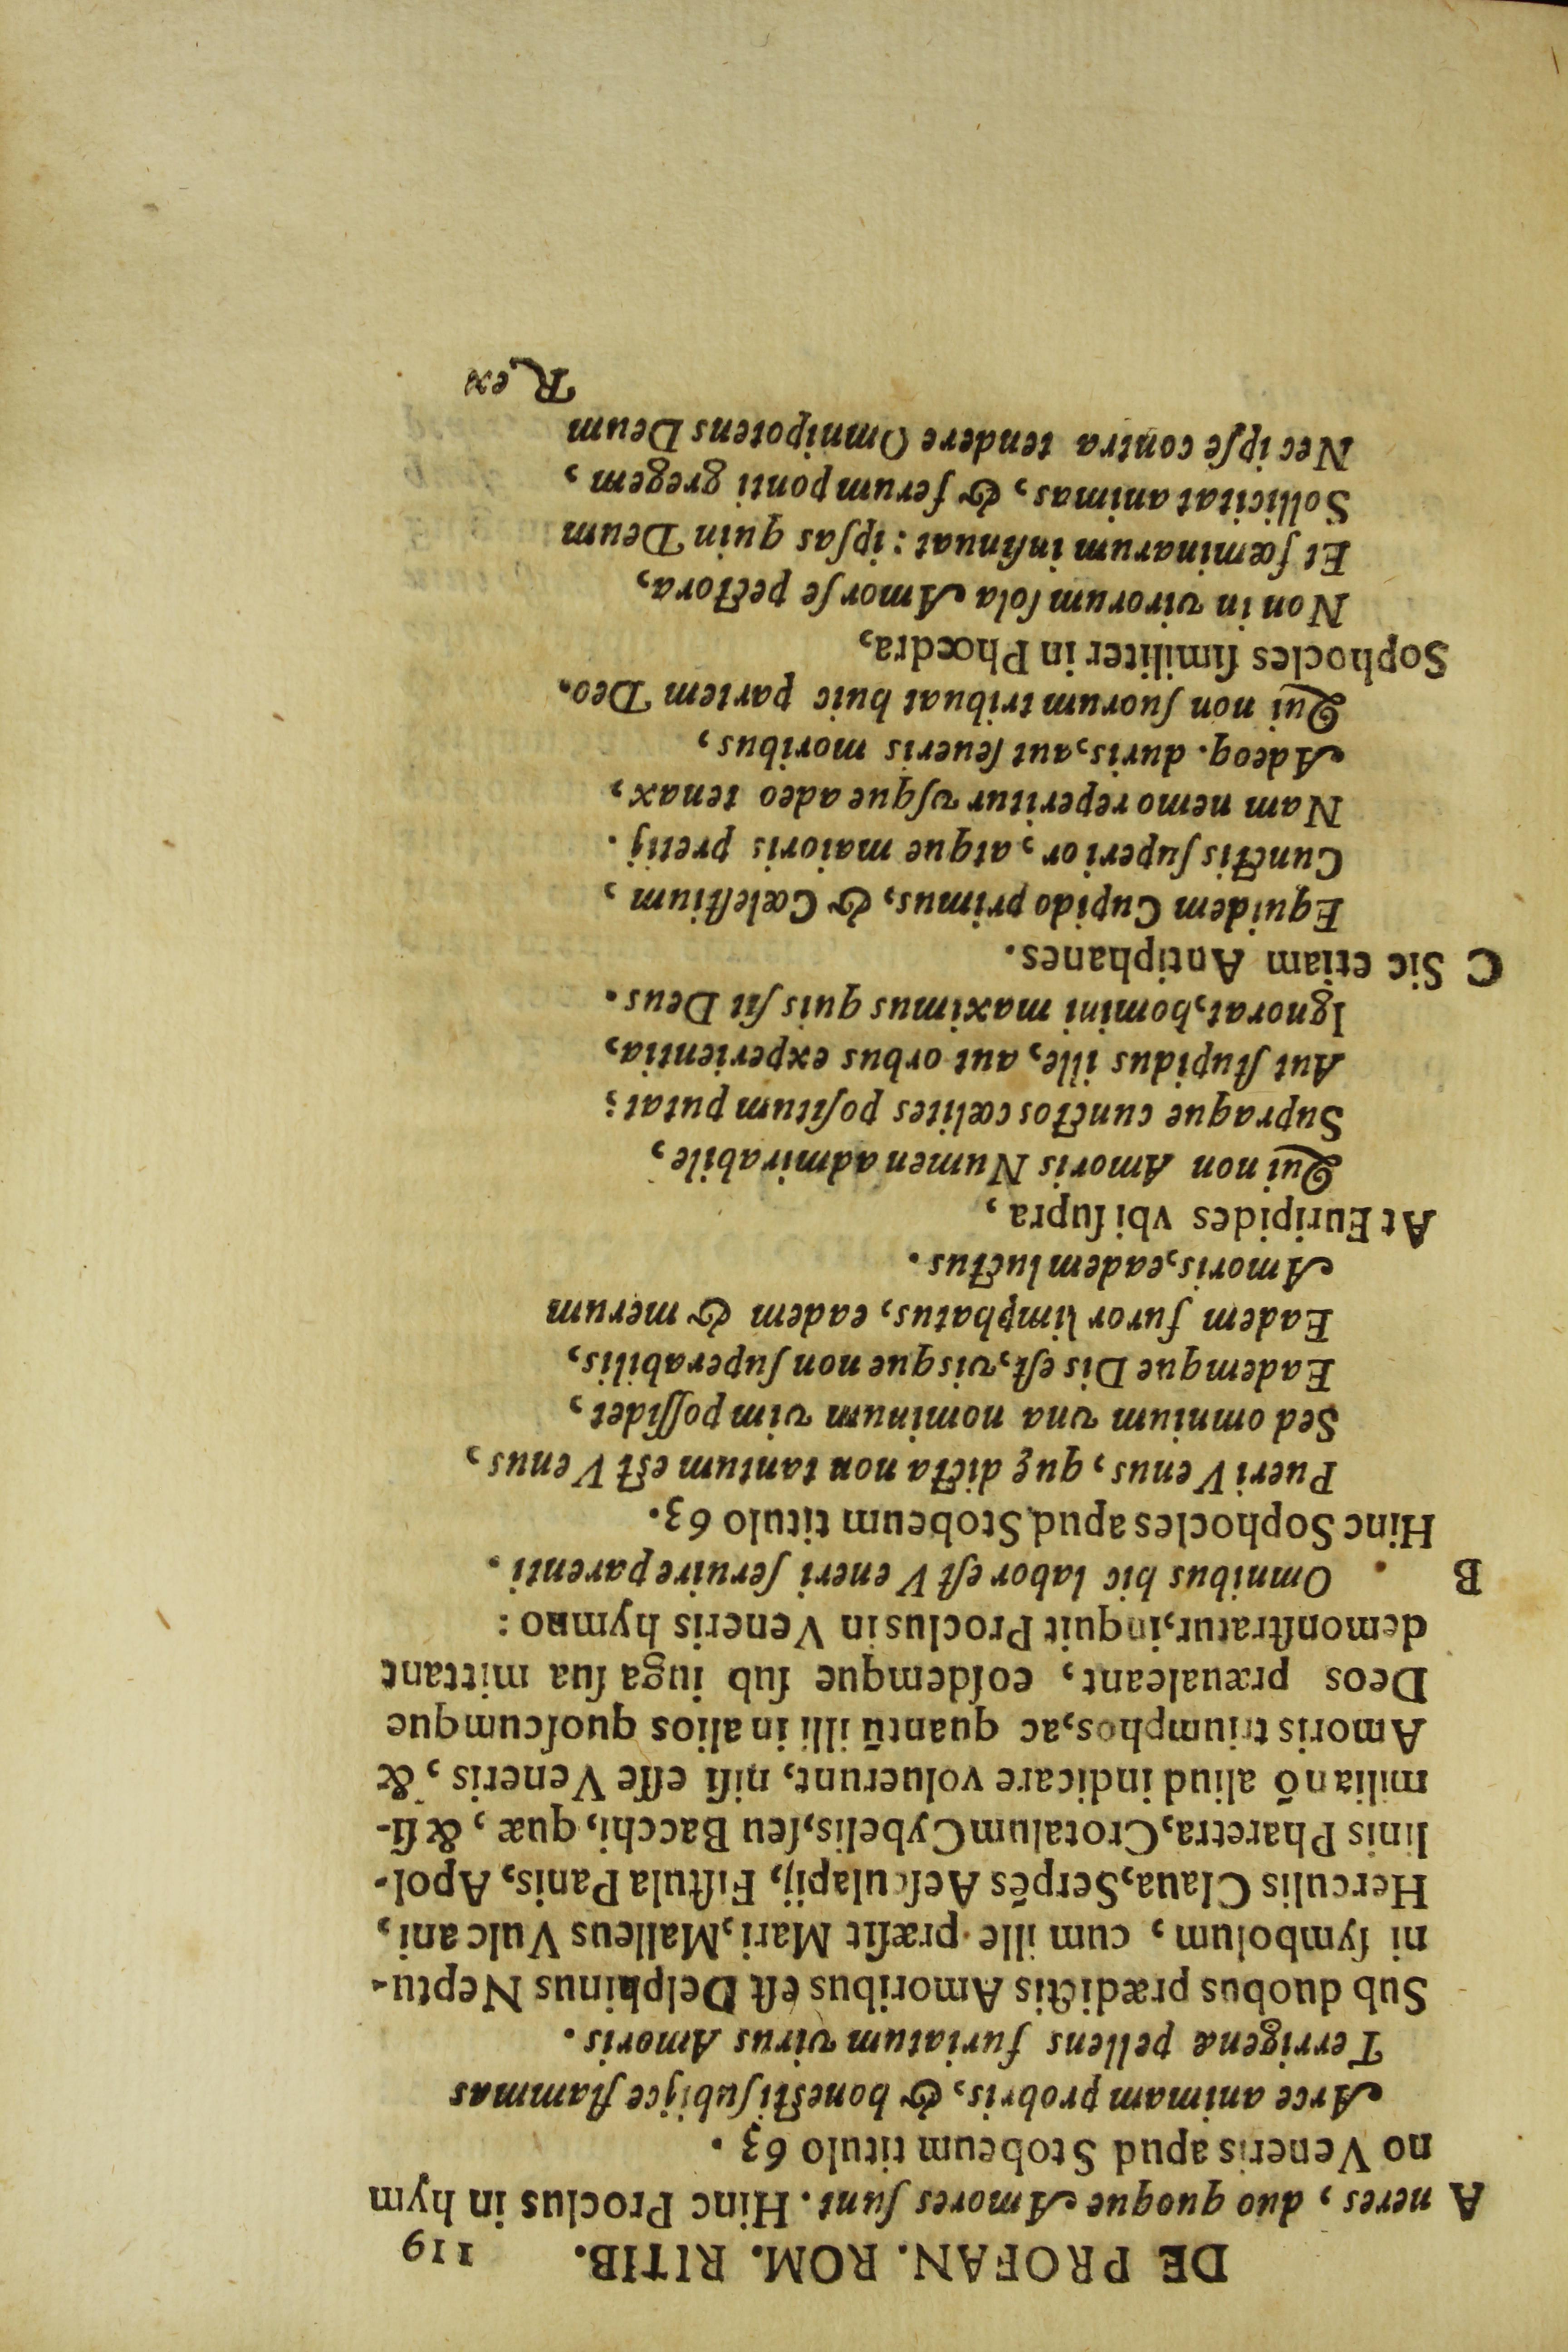 DE PROFAN. ROM. RITIB. 119
A neres, duo quoque Amores ſunt. Hinc Proclus in hym
no Veneris apud Stobeum titulo 63.
Arce animam probris, & honeſti ſubijce flammas
Terrigenæ pellens furiatum virus Amoris.
Sub duobus prædictis Amoribus eſt Delphinus Neptu-
ni ſymbolum, cum ille præſit Mari, Malleus Vulcani,
Herculis Claua, Serpẽs Aeſculapij, Fiſtula Panis, Apol-
linis Pharetra, Crotalum Cybelis, ſeu Bacchi, quæ, & ſi-
milia nõ aliud indicare voluerunt, niſi eſſe Veneris, &
Amoris triumphos, ac quantũ illi in alios quoſcumque
Deos præualeant, eoſdemque ſub iuga ſua mittant
demonſtratur, inquit Proclus in Veneris hymno:
B Omnibus hic labor eſt Veneri ſeruire parenti.
Hinc Sophocles apud Stobeum titulo 63.
Pueri Venus, quę dicta non tantum eſt Venus,
Sed omnium vna nominum vim poſſidet,
Eademque Dis eſt, visque non ſuperabilis,
Eadem furor limphatus, eadem & merum
Amoris, eadem luctus.
At Euripides vbi ſupra,
Qui non Amoris Numen admirabile,
Supraque cunctos cœlites poſitum putat;
Aut ſtupidus ille, aut orbus experientia,
Ignorat, homini maximus quis ſit Deus.
C Sic etiam Antiphanes.
Equidem Cupido primus, & Cœleſtium,
Cunctis ſuperior, atque maioris pretij.
Nam nemo reperitur vſque adeo tenax,
Adeoq. duris, aut ſeueris moribus,
Qui non ſuorum tribuat huic partem Deo.
Sophocles ſimiliter in Phœdra,
Non in virorum ſola Amor ſe pectora,
Et fœminarum inſinuat: ipſas quin Deum
Sollicitat animas, & ferum ponti gregem,
Nec ipſe contra tendere Omnipotens Deum
Rex